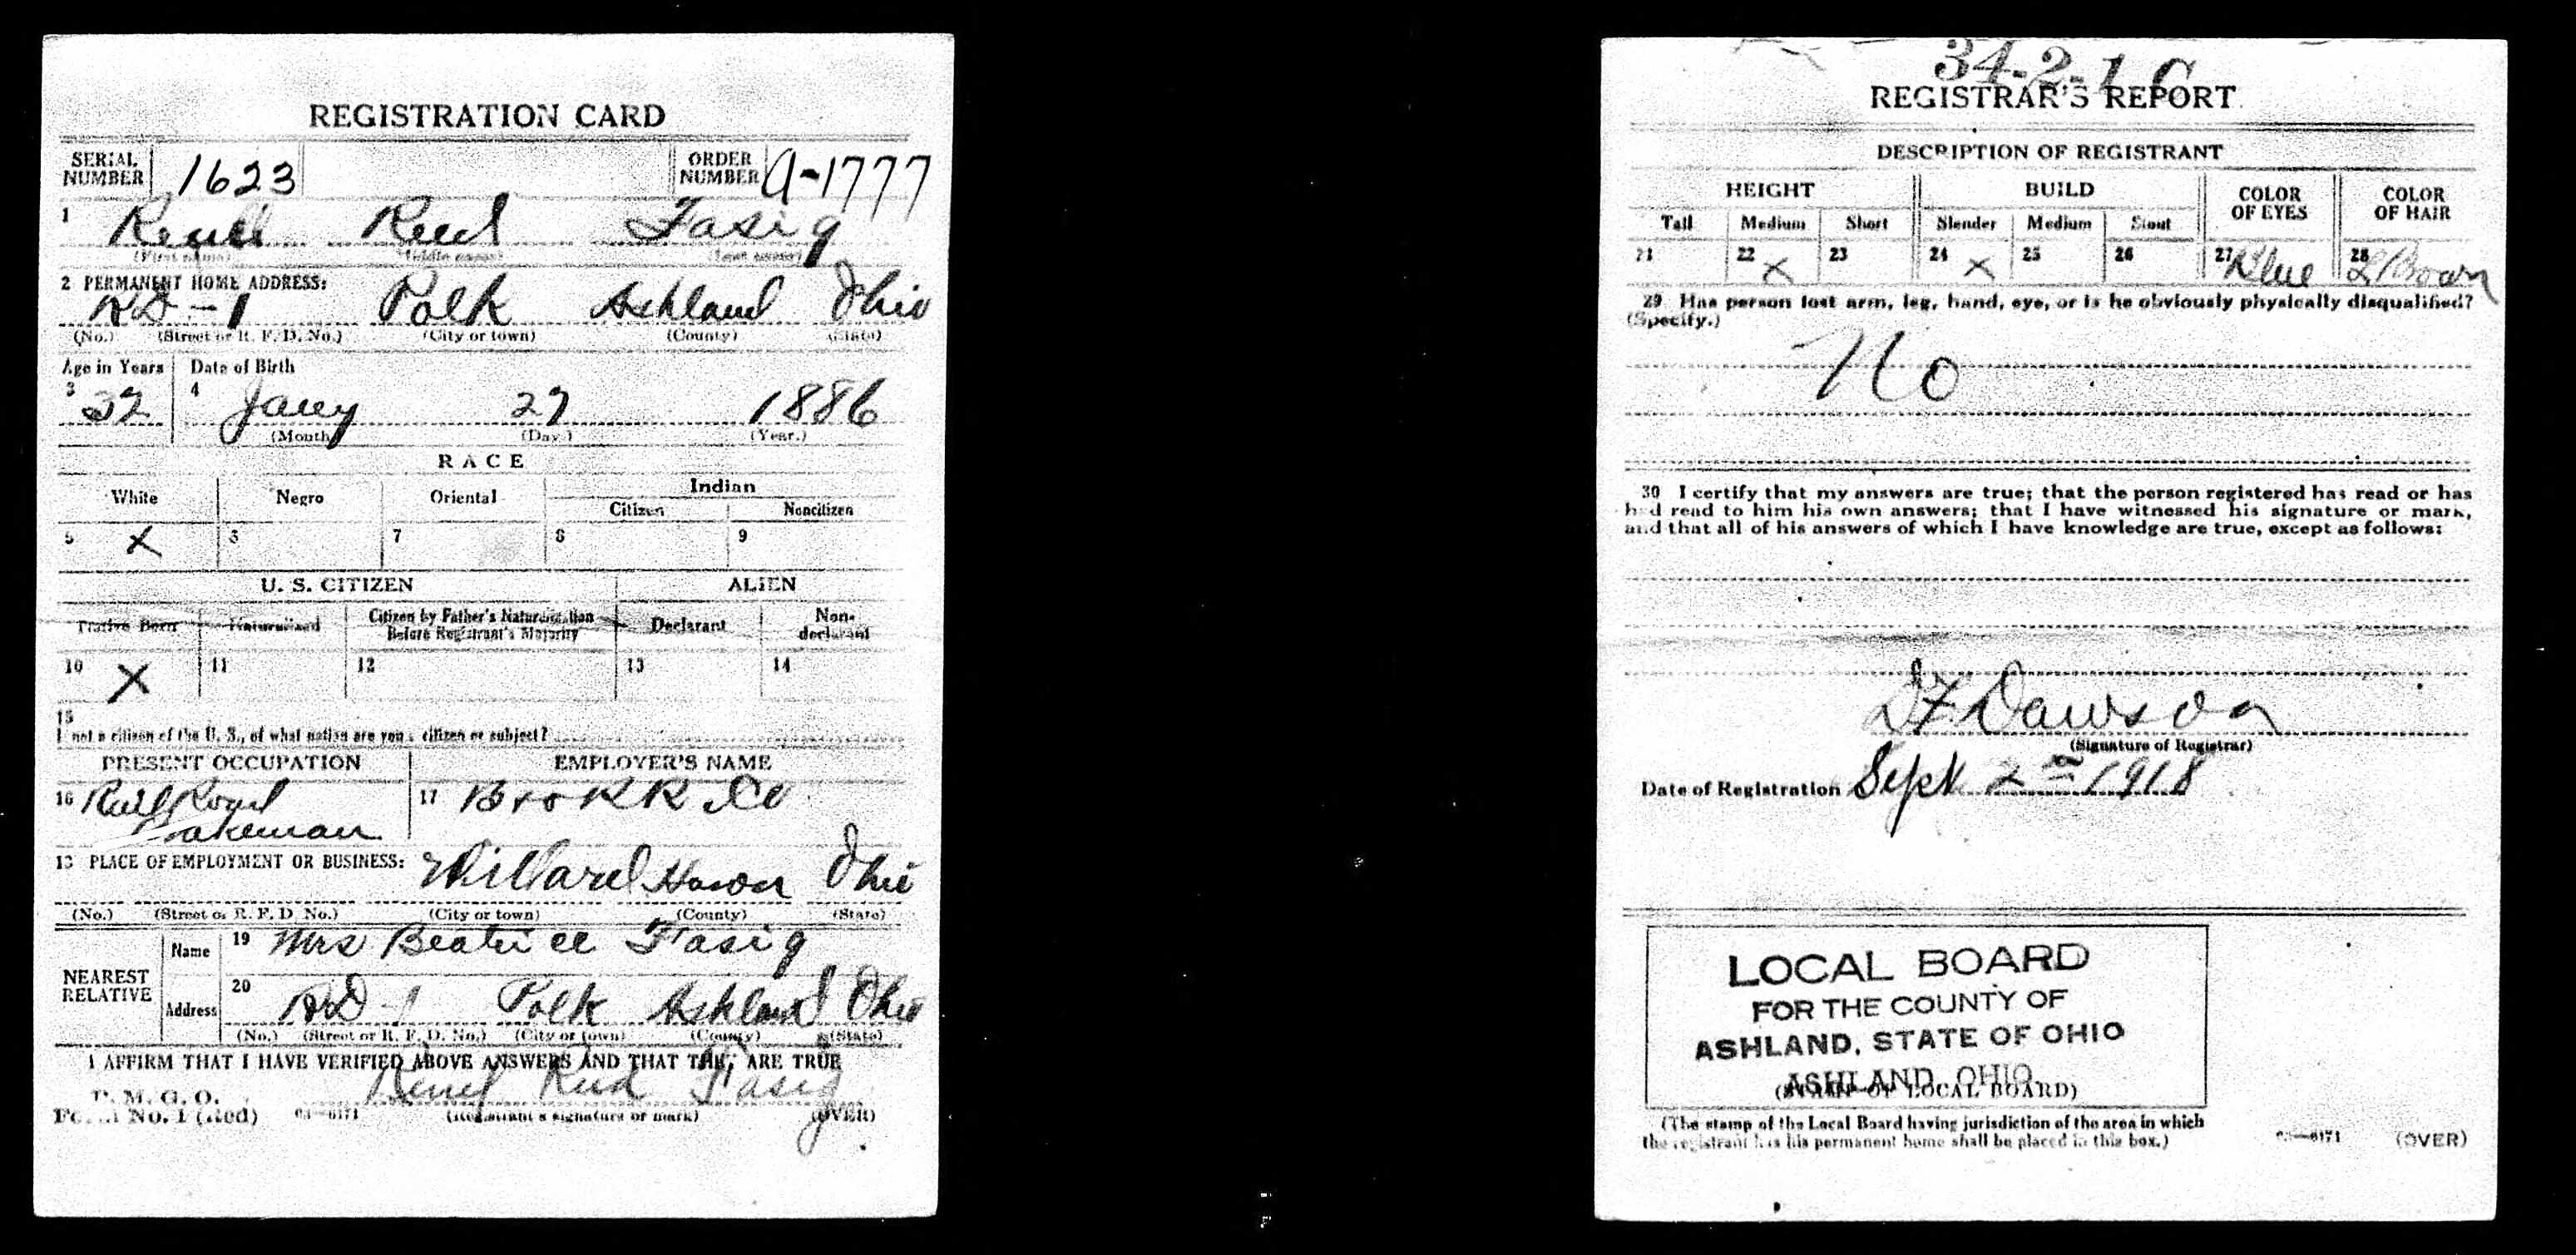 REGISTRATION CARD
SERIAL NUMBER 1623 ORDER NUMBER A-1777
1 Reed Fasig
(First name) (Middle name) (Last name)
2 PERMANENT HOME ADDRESS:
RD-1 Polk Ashland Ohio
(No.) (Street or R. F. D. No.) (City or town) (County) (State)
Age in Years Date of Birth
3 32 4 Jany 27 1886
(Month) (Day.) (Year.)
RACE
White Negro Oriental Indian
Citizen Noncitizen
5 X 6 7 8 9
U. S. CITIZEN ALIEN
Native Born Naturalized Citizen by Father's Naturalization Before Registrant's Majority Declarant Non-declarant
10 X 11 12 13 14
15
If not a citizen of the U. S., of what nation are you a citizen or subject?
PRESENT OCCUPATION EMPLOYER'S NAME
16 Rail Road Brakeman 17 B & O RR Co
18 PLACE OF EMPLOYMENT OR BUSINESS:
Willard Huron Ohio
(No.) (Street or R. F. D. No.) (City or town) (County) (State)
NEAREST RELATIVE
Name 19 Mrs Beatrice Fasig
Address 20 RD-1 Polk Ashland Ohio
(No.) (Street or R. F. D. No.) (City or town) (County) (State)
I AFFIRM THAT I HAVE VERIFIED ABOVE ANSWERS AND THAT THEY ARE TRUE
P. M. G. O.
Form No. 1 (Red) 03—6171 Reed Fasig
(Registrant's signature or mark) (OVER)
34-2-1 C
REGISTRAR'S REPORT
DESCRIPTION OF REGISTRANT
HEIGHT BUILD COLOR OF EYES COLOR OF HAIR
Tall Medium Short Slender Medium Stout
21 22 X 23 24 X 25 26 27 Blue 28 L Brown
29 Has person lost arm, leg, hand, eye, or is he obviously physically disqualified?
(Specify.)
No
30 I certify that my answers are true; that the person registered has read or has
had read to him his own answers; that I have witnessed his signature or mark,
and that all of his answers of which I have knowledge are true, except as follows:
Dawson
(Signature of Registrar)
Date of Registration Sept 1918
LOCAL BOARD
FOR THE COUNTY OF
ASHLAND, STATE OF OHIO
ASHLAND, OHIO
(STAMP OF LOCAL BOARD)
(The stamp of the Local Board having jurisdiction of the area in which
the registrant has his permanent home shall be placed in this box.)
03—6171 (OVER)